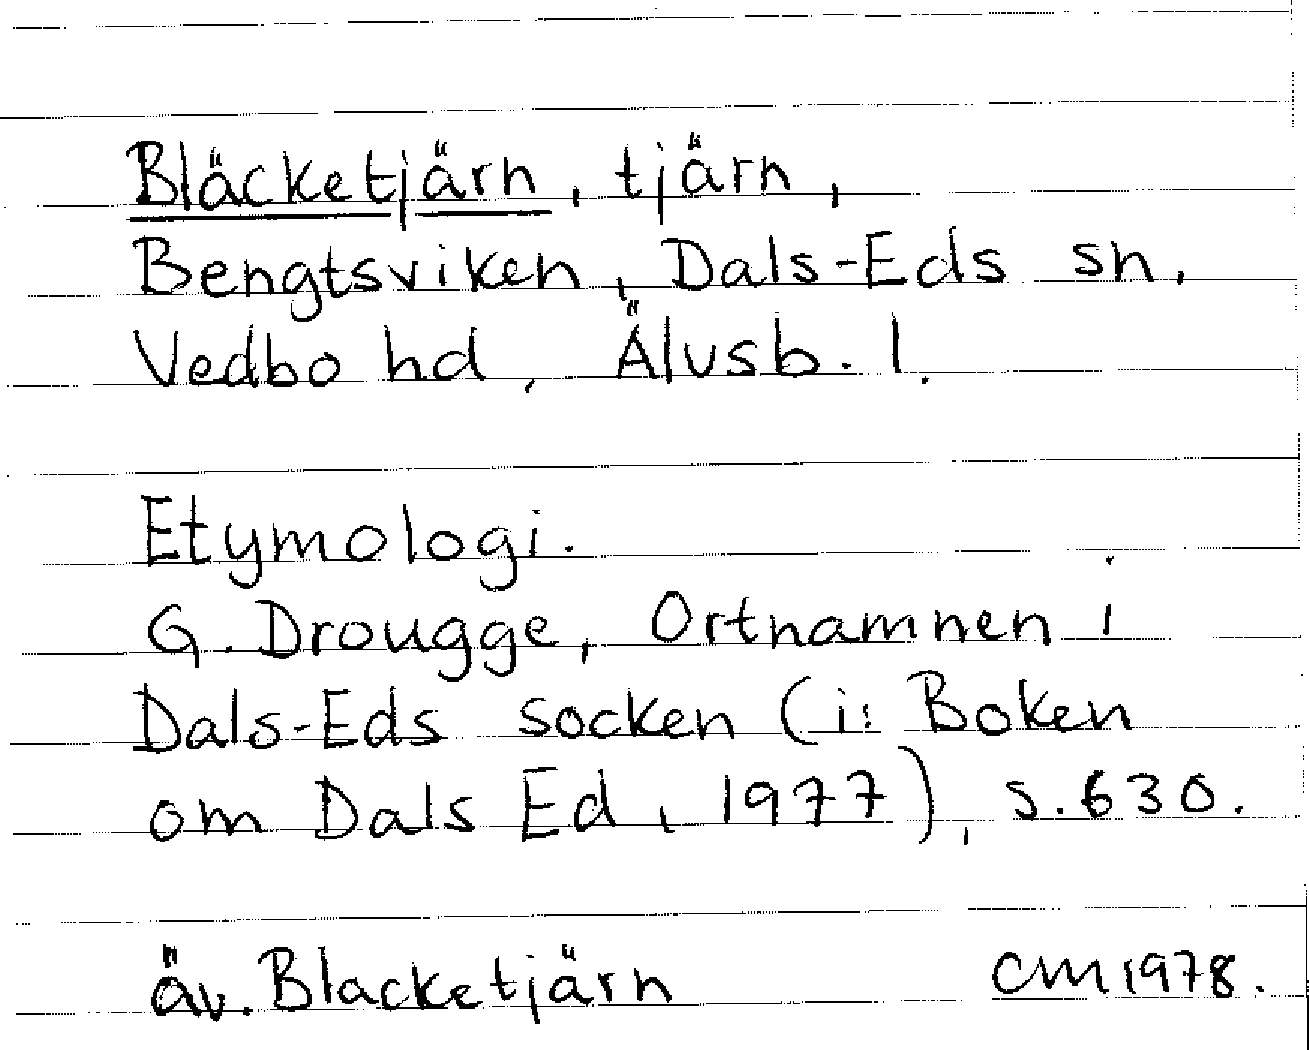 Bläcketjärn, tjärn,
Bengtsviken, Dals-Eds sn,
Vedbo hd, Älvsb. l.
Etymologi.
G. Drougge, Ortnamnen i
Dals-Eds socken (i: Boken
om Dals Ed, 1977), s. 630.
äv. Blacketjärn CM 1978.